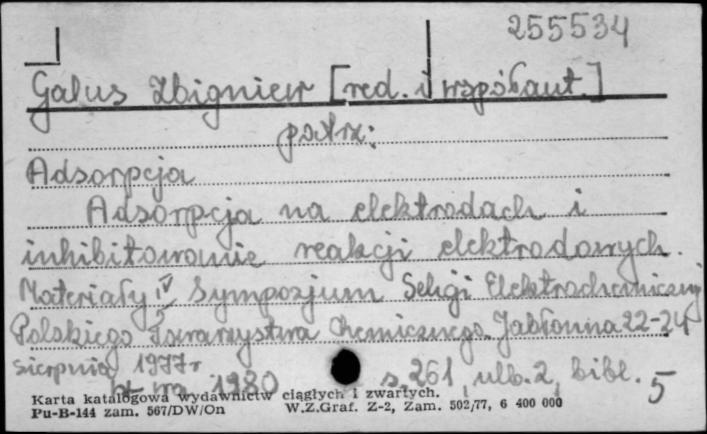 255534
Galus Zbigniew [red. i współaut.]
patrz:
Adsorpcja
Adsorpcja na elektrodach i
inhibitowanie reakcji elektrodowych.
Materiały IV Sympozjum Sekcji Elektrochemicznej
Polskiego Towarzystwa Chemicznego. Jabłonna 22-24
sierpnia 1977 r
1980 s. 261, ulb. 2, bibl. 5
Karta katalogowa wydawnictw ciągłych i zwartych.
Pu-B-144 zam. 567/DW/On W.Z.Graf. Z-2, Zam. 502/77, 6 400 000